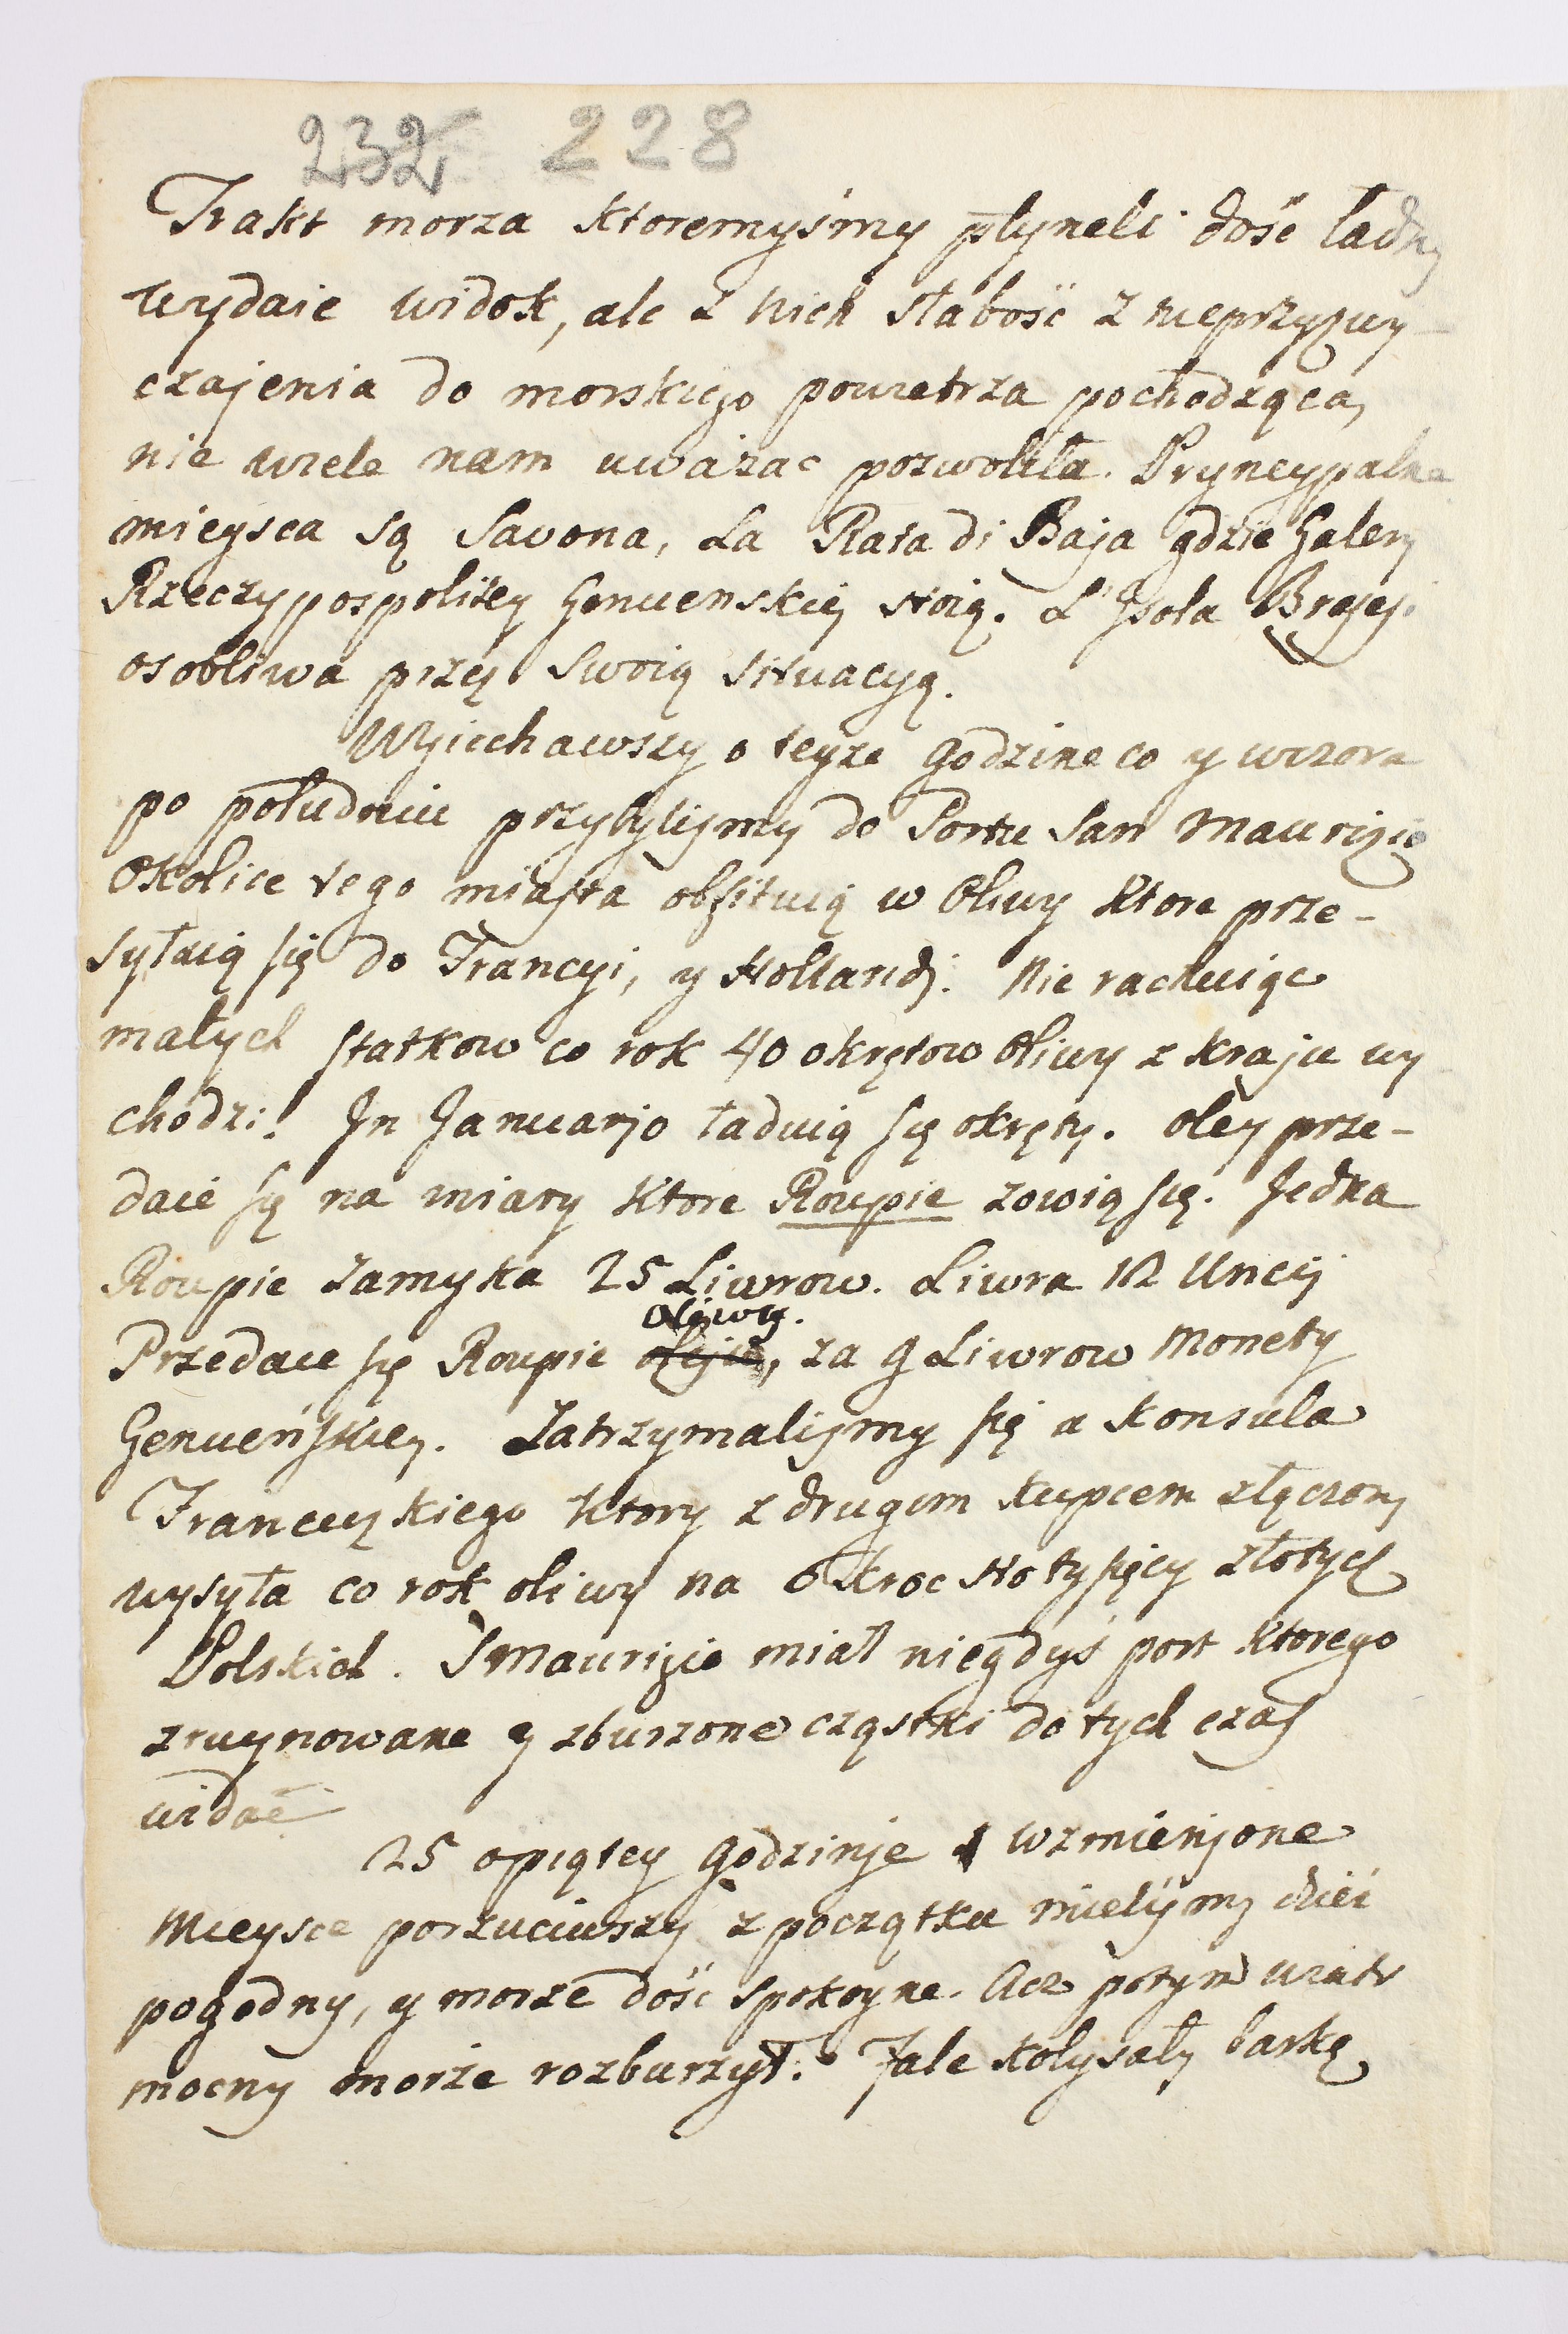 232 228
Trakt morza ktoremyśmy płyneli dość ładny
wydaie widok, ale z nich słabość z nieprzyzwy-
czajenia do morskiego powietrza pochodząca,
nie wiele nam uważac pozwoliła. Pryncypalne
mieysca są Savona, La Rata di Baja gdzie Galery
Rzeczypospolitey Genuenskiej stoią. L'Jsola
osobliwa przez swoią situacyą.
Wyiechawszy o teyze godzine co y wczora
po południu przybylismy do Portu San Maurizio
Okolice tego miasta obfituią w Oliwy ktore prze-
syłaią się do Francyi, y Hollandj. Nie rachuiąc
małych statkow co rok 40 okrętow Oliwy z kraju wy
chodzi! Jn Januarjo ładuią się okręty. oley prze-
daie się na miary ktore Roupie zowią się. Jedna
Roupie zamyka 25 Liwrow. Liwra 12 Uncij
Oliwy.
Przedaie się Roupie oleju, za 9 Liwrow Monety
Genueńskiey. Zatrzymalismy się u Konsula
Francuzkiego ktory z drugim kupcem złączony
wysyła co rok oliwy na 6 kroc sto tysięcy złotych
Polskich. S Maurizio miał niegdyś port ktorego
zruynowane y zburzone cząstki do tych czas
widać
25 o piątey Godzinje wzmienjone
Mieysce porzuciwszy z początku mielismy dzień
pogodny, y morze dość spokoyne. Acz potym wiatr
mocny morze rozburzył. Fale kołysały barkę